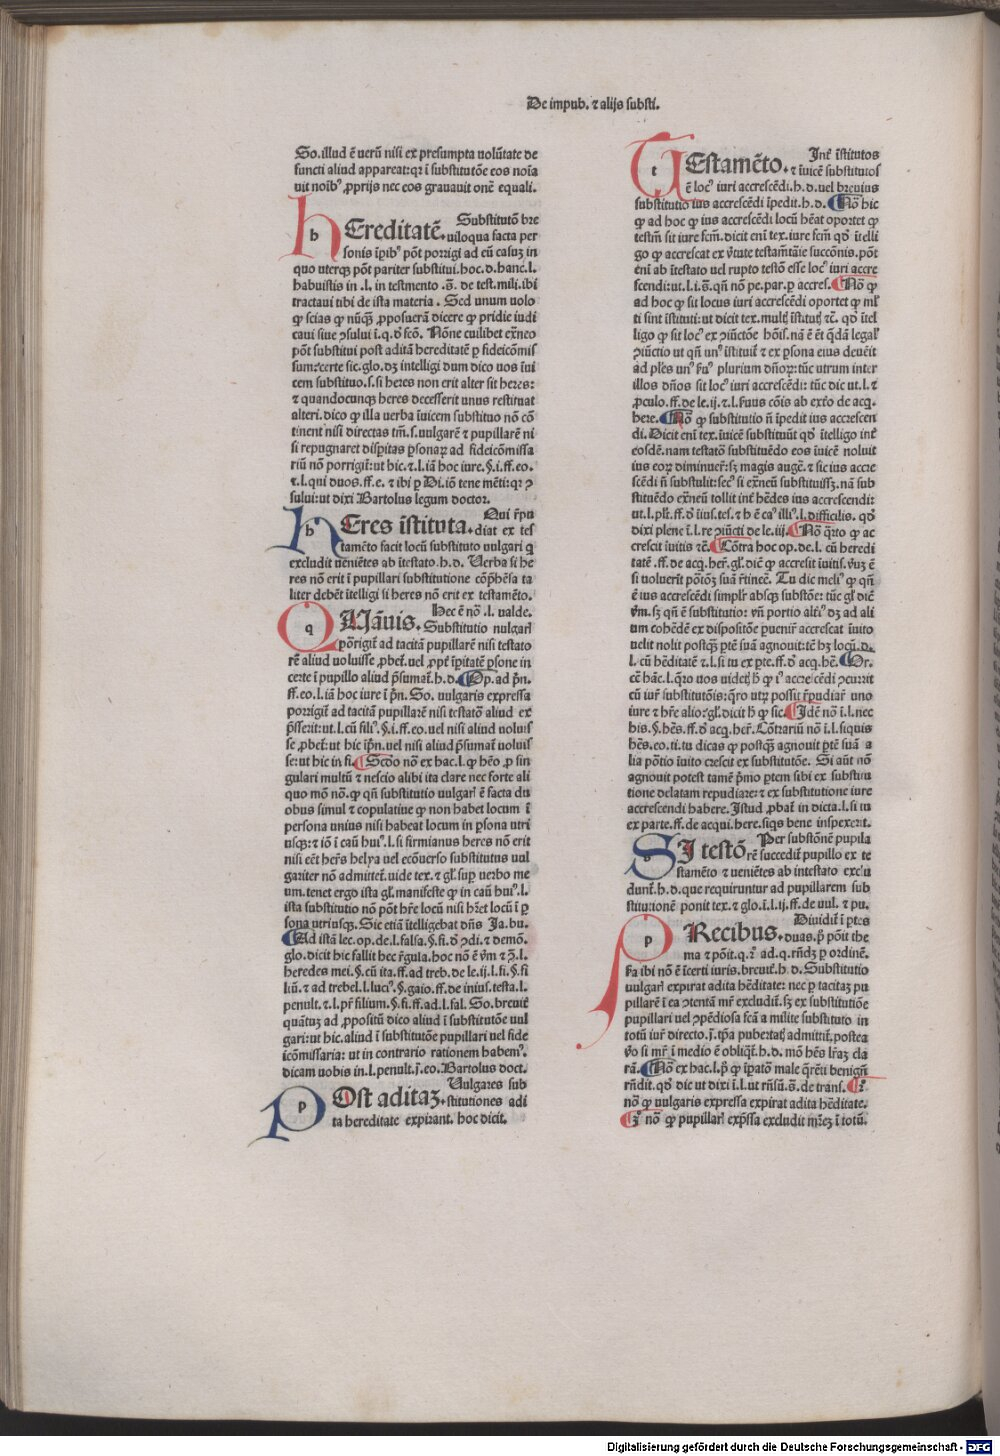 De impub. ⁊ alijs substi.
So. illud ē uerū nisi ex presumpta uolūtate de
functi aliud appareat: qꝛ ī substitutōe eos noīa
uit noībꝰ ꝓprijs nec eos grauauit onē equali.
Substitutō bre
hEreditatē. uiloqua facta per
sonis īpibꝰ pōt porrigi ad eū casuꝫ in
quo uterqꝫ pōt pariter substitui. hoc. d. hanc. l.
habuistis in .l. in testmento .s̄. de test. mili. ibi
tractaui tibi de ista materia . Sed unum uolo
ꝙ scias ꝙ nūqꝫ ꝓposuerā dicere ꝙ pridie iudi
caui siue ↄsului ī. q. d̄ fcō. Nōne cuilibet exn̄eo
pōt substitui post aditā hereditatē ꝑ fideicōmis
sum: certe sic. glo. dꝫ intelligi dum dico uos īui
cem substituo. s. si heres non erit alter sit heres:
⁊ quandocunqꝫ heres decesserit unus restituat
alteri. dico ꝙ illa uerba īuicem substituo nō cō
tinent nisi directas tm̄. s. uulgarē ⁊ pupillarē ni
si repugnaret disꝑitas ꝑsonaꝝ ad fideicōmissa
riū nō porrigit̄: ut hic. ⁊. l. iā hoc iure. §. i. ff. eo.
⁊. l. qui duos. ff. e. ⁊ ibi ꝑ Di. iō tene mēti: qꝛ ↄ
sului: ut dixi Bartolus legum doctor.
Qui r̄pu
hEres īstituta. diat ex tes
tamēto facit locū substituto uulgari q̄
excludit ueniētes ab ītestato. h. d. Verba si he
res nō erit ī pupillari substitutione cōp̄hēsa ta
liter debēt ītelligi si heres nō erit ex testamēto.
Hec ē nō .l. ualde.
qUAmuis. Substitutio uulgari
porrigit̄ ad tacitā pupillarē nisi testato
rē aliud uoluisse ꝓbet̄. uel ꝓpt̄ īpitatē ꝑsone in
certe ī pupillo aliud p̄sumat̄. h. d. Op. ad pn̄.
ff. eo. l. iā hoc iure ī pn̄. So. uulgaris expressa
porrigit̄ ad tacitā pupillarē nisi testatō aliud ex
p̄sserit: ut. l. cū filiꝰ. §. i. ff. eo. uel nisi aliud uoluis
se ꝓbet̄: ut hic īpn̄. uel nisi aliud p̄sumat̄ uoluis
se: ut hic in fi. Scdo nō ex hac. l. ꝙ hēo ꝓ sin
gulari multū ⁊ nescio alibi ita clare nec forte ali
quo mō nō. ꝙ qn̄ substitutio uulgari ē facta du
obus simul ⁊ copulatiue ꝙ non habet locum ī
persona unius nisi habeat locum in ꝑsona utri
usqꝫ: ⁊ iō ī caū huiꝰ. l. si firmianus heres nō erit
nisi eēt her̄s helya uel ecōuerso substitutus uul
gariter nō admittet̄. uide tex. ⁊ gl. suꝑ uerbo me
um. tenet ergo ista gl. manifeste ꝙ in caū huiꝰ. l.
ista substitutio nō pōt hr̄e locū nisi hr̄et locū ī ꝑ
sona utriusqꝫ. Sic etiā ītelligebat dn̄s Ja. bu.
Ad istā lec. op. de. l. falsa. §. fi. d̄ ↄdi. ⁊ demō.
glo. dicit hic fallit hec r̄gula. hoc nō ē v̄m ⁊ ↄ̄. l.
heredes mei. §. cū ita. ff. ad treb. de le. ij. l. fi. §. fi
liū. ⁊ ad trebel. l. luciꝰ. §. gaio. ff. de inius. testa. l.
penult. ⁊. l. pr̄ filium. §. fi. ff. ad. l. fal. So. breuit̄
quātuꝫ ad ꝓpositū dico aliud ī substitutōe uul
gari: ut hic. aliud ī substitutōe pupillari uel fide
icōmissaria: ut in contrario rationem habemꝰ.
dicam uobis in. l. penult. j. eo. Bartolus doct.
Vulgares sub
pOst aditaꝫ. stitutiones adi
ta hereditate expirant. hoc dicit.
Int̄ īstitutos
tEstamēto. ⁊ īuicē substitutos
ē locꝰ iuri accrescēdi. h. d. uel breuius
substitutio ius accrescēdi īpedit. h. d. Nō hic
ꝙ ad hoc ꝙ ius accrescēdi locū hēat oportet ꝙ
testm̄ sit iure fcm̄. dicit eni tex. iure fcm̄ qd̄ ītelli
go ꝙ accrescat ex v̄tute testam̄tāie succōnis. pōt
eni ab ītestato uel rupto testō esse locꝰ iuri accre
scendi: ut. l. i. s̄. qn̄ nō pe. par. ꝑ accres. Nō ꝙ
ad hoc ꝙ sit locus iuri accrescēdi oportet ꝙ ml̄
ti sint īstituti: ut dicit tex. mult̄ īstitut̄ ⁊c̄. qd̄ ītel
ligo ꝙ sit locꝰ ex ↄiūctōe hōis. nā ē ēt q̄dā legaꝉ
ↄiūctio ut qn̄ unꝰ īstituit̄ ⁊ ex ꝑsona eius deuēit
ad ples unꝰ ẜuꝰ plurium dn̄oꝝ: tūc utrum inter
illos dn̄os sit locꝰ iuri accrescēdi: tūc dic ut. l. ⁊
ꝓculo. ff. de le. ij. ⁊. l. ẜuus cōis ab extō de acq.
here. Nō ꝙ substitutio n̄ īpedit ius accrescen
di. Dicit eni tex. īuicē substituūt qd̄ ītelligo int̄
eosdē. nam testatō substituēdo eos īuicē noluit
ius eoꝝ diminuer̄: sꝫ magis augē. ⁊ sic ius accre
scēdi n̄ substulit: secꝰ si exn̄eū substituissꝫ. nā sub
stituēdo exn̄eū tollit int̄ hēdes ius accrescendi:
ut. l. plr̄. ff. d̄ ius. tes. ⁊ h̄ ē caꝰ illiꝰ. l. difficilis. qd̄
dixi plene ī. l. re ↄiūcti de le. iij. Nō q̄rto ꝙ ac
crescit īuitis ⁊c̄. Cōtra hoc op. de. l. cū heredi
tatē. ff. de acq. her̄. gl. dic̄ ꝙ accresit īuitis. v̄uꝫ ē
si uoluerit pōtōꝫ suā r̄tincē. Tu dic meliꝰ ꝙ qn̄
ē ius accrescēdi simplr̄ absqꝫ substōe: tūc gl. dic̄
v̄m. sꝫ qn̄ ē substitutio: vn̄ portio altīꝰ dꝫ ad ali
um cohēdē ex dispositōe ꝑuenir̄ accrescat īuito
uelit nolit postqꝫ ꝑtē suā agnouit: tē hꝫ locū. d.
l. cū hēditatē ⁊. l. si tu ex ꝑte. ff. d̄ acq. hē. Or.
cē hāc. l. q̄ro uos uidet̄ h̄ ꝙ iꝰ accrescēdi ↄcurrit
cū iur̄ substitutōis: q̄ro utꝝ possit r̄pudiar̄ uno
iure ⁊ hr̄e alio: gl. dicit h̄ ꝙ sic. Idē nō ī. l. nec
his. §. hēs. ff. d̄ acq. her̄. Cōtrariū nō ī. l. siquis
hēs. eo. ti. tu dicas ꝙ postqꝫ agnouit ꝑtē suā a
lia pōtio īuito crescit ex substitutōe. Si aūt nō
agnouit potest tamē p̄mo ꝑtem sibi ex substitu
tione delatam repudiare: ⁊ ex substitutione iure
accrescendi habere. Istud ꝓbat̄ in dicta. l. si tu
ex parte. ff. de acqui. here. siqs bene inspexerit.
Per substōnē pupila
sI testō. rē succedit̄ pupillo ex te
stamēto ⁊ ueniētes ab intestato exclu
dunt̄. h. d. que requiruntur ad pupillarem sub
stitutionē ponit tex. ⁊ glo. ī. l. ij. ff. de uul. ⁊ pu.
Diuidit̄ ī ꝑtes
pRecibus. duas. p̄ pōit the
ma ⁊ pōit. q. ꝛ̄ ad. q. rn̄dꝫ ꝑ ordinē.
ẜa ibi nō ē īcerti iuris. breuit̄. h. d. Substitutio
uulgari expirat adita hēditate: nec ꝑ tacitaꝫ pu
pillarē ī ea ↄtentā mr̄ excludit̄. sꝫ ex substitutiōe
pupillari uel ↄpēdiosa fcā a milite substituto in
totū iur̄ directo. j. tꝑa pubertat̄ admittit̄. postea
v̄o si mr̄ ī medio ē obliq̄t̄. h. d. mō hēs lr̄aꝫ cla
rā. Nō ex hac. l. p̄ ꝙ īꝑatō male q̄rēti benign̄
rn̄dit. qd̄ dic ut dixi ī. l. ut rn̄sū. s̄. de trans. ꝛ̄.
nō ꝙ uulgaris expressa expirat adita hēditate.
ꝫ̄. nō ꝙ pupillari exp̄ssa excludit mr̄eꝫ ī totū.
Digitalisierung gefördert durch die Deutsche Forschungsgemeinschaft - DFG